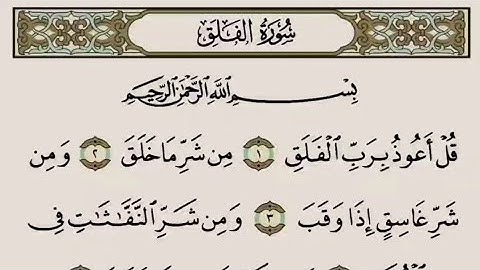 سُورَةُ الفَلَقِ
بِسْمِ ٱللَّهِ ٱلرَّحْمَٰنِ ٱلرَّحِيمِ
قُلْ أَعُوذُ بِرَبِّ ٱلْفَلَقِ ١ مِن شَرِّ مَا خَلَقَ ٢ وَمِن
شَرِّ غَاسِقٍ إِذَا وَقَبَ ٣ وَمِن شَرِّ ٱلنَّفَّـٰثَـٰتِ فِى